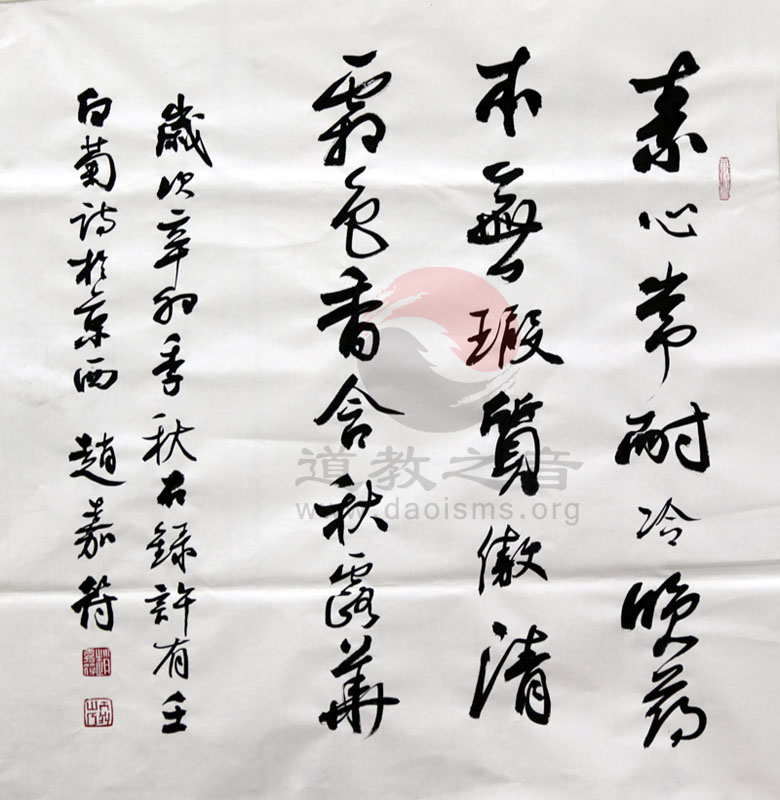 素心常耐冷晚莭
本無瑕質傲清
霜色香含秋露華
歲次辛卯季秋右錄許有壬
白菊詩於京西 趙嘉符
道教之音
www.daoisms.org